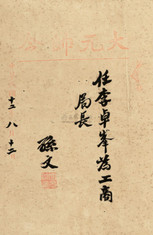 大元帥令
任李卓峯為工商
局長
孫文
十二 八 十二